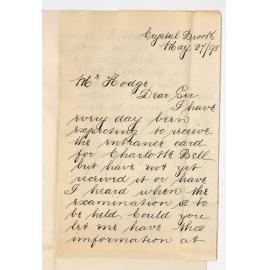 Crystal Brook
May 27/98
Mr Hodge
Dear Sir
I have
every day been
expecting to receive
the entrance card
for Charlotte Bell
but have not yet
received it or have
I heard when the
examination is to
be held. Could you
let me have the
information at